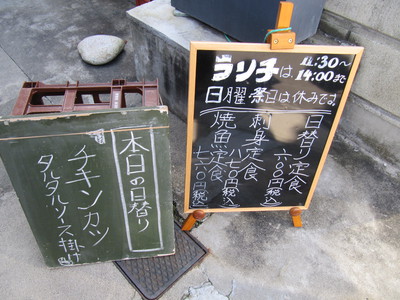 ランチは、11:30〜
14:00まで
日曜・祭日は休みです。
日替り定食
六〇〇円(税込)
刺身定食
八七〇円(税込)
焼魚定食
七二〇円(税込)
本日の日替り
チキンカツ
タルタルソース掛け